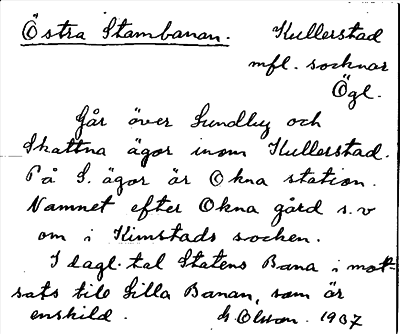 Östra Stambanan. Kullerstad
mfl. socknar
Ögl.
Går över Lundby och
Skattna ägor inom Kullerstad.
På S. ägor är Okna station.
Namnet efter Okna gård s.v
om i Kimstads socken.
I dagl. tal Statens Bana i mot-
sats till Lilla Banan, som är
enskild. G. Olson. 1907